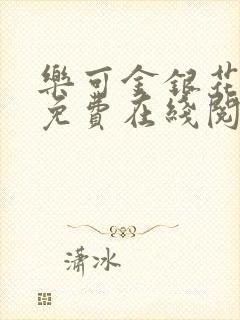 樂可金銀花
免費在綫閱
瀟冰